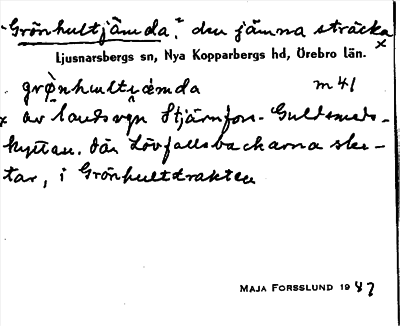 Grönhultjämda", den jämna sträcka
x
Ljusnarsbergs sn, Nya Kopparbergs hd, Örebro län.
m 41
x av landsvgn Stjärnfors-Guldsmeds-
hyttan, där Lövfallsbackarna slu-
tar, i Grönhulttrakten
MAJA FORSSLUND 1947